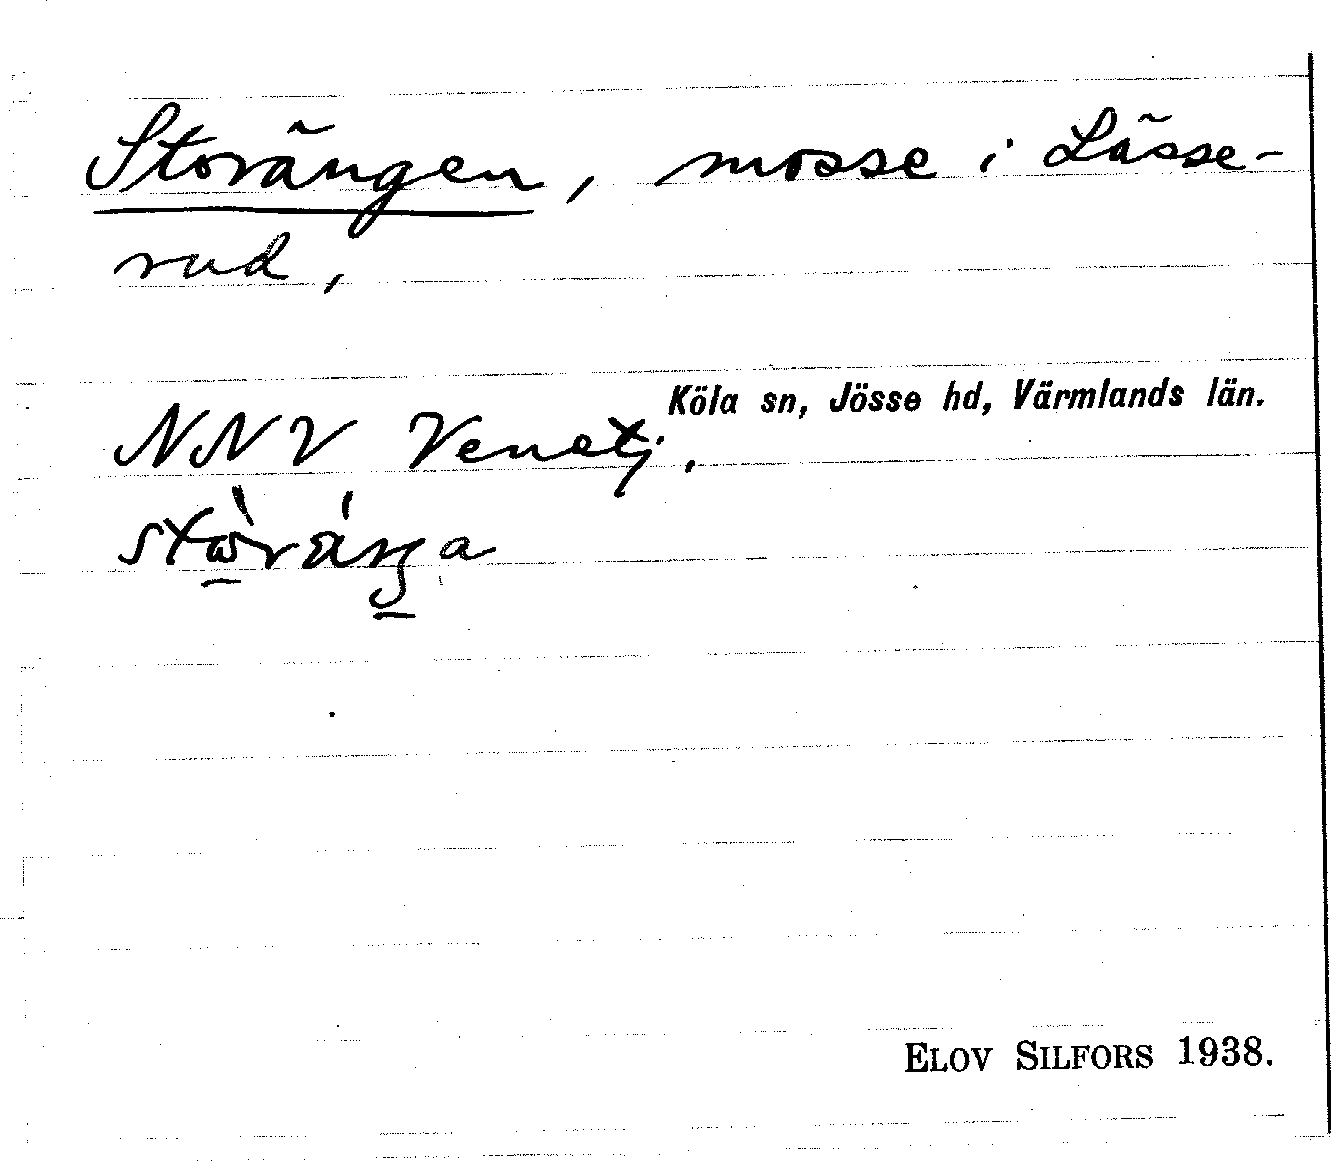 Storängen, mosse i Lässe-
rud,
Köla sn, Jösse hd, Värmlands län.
NNV Venetj.
ELOV SILFORS 1938.